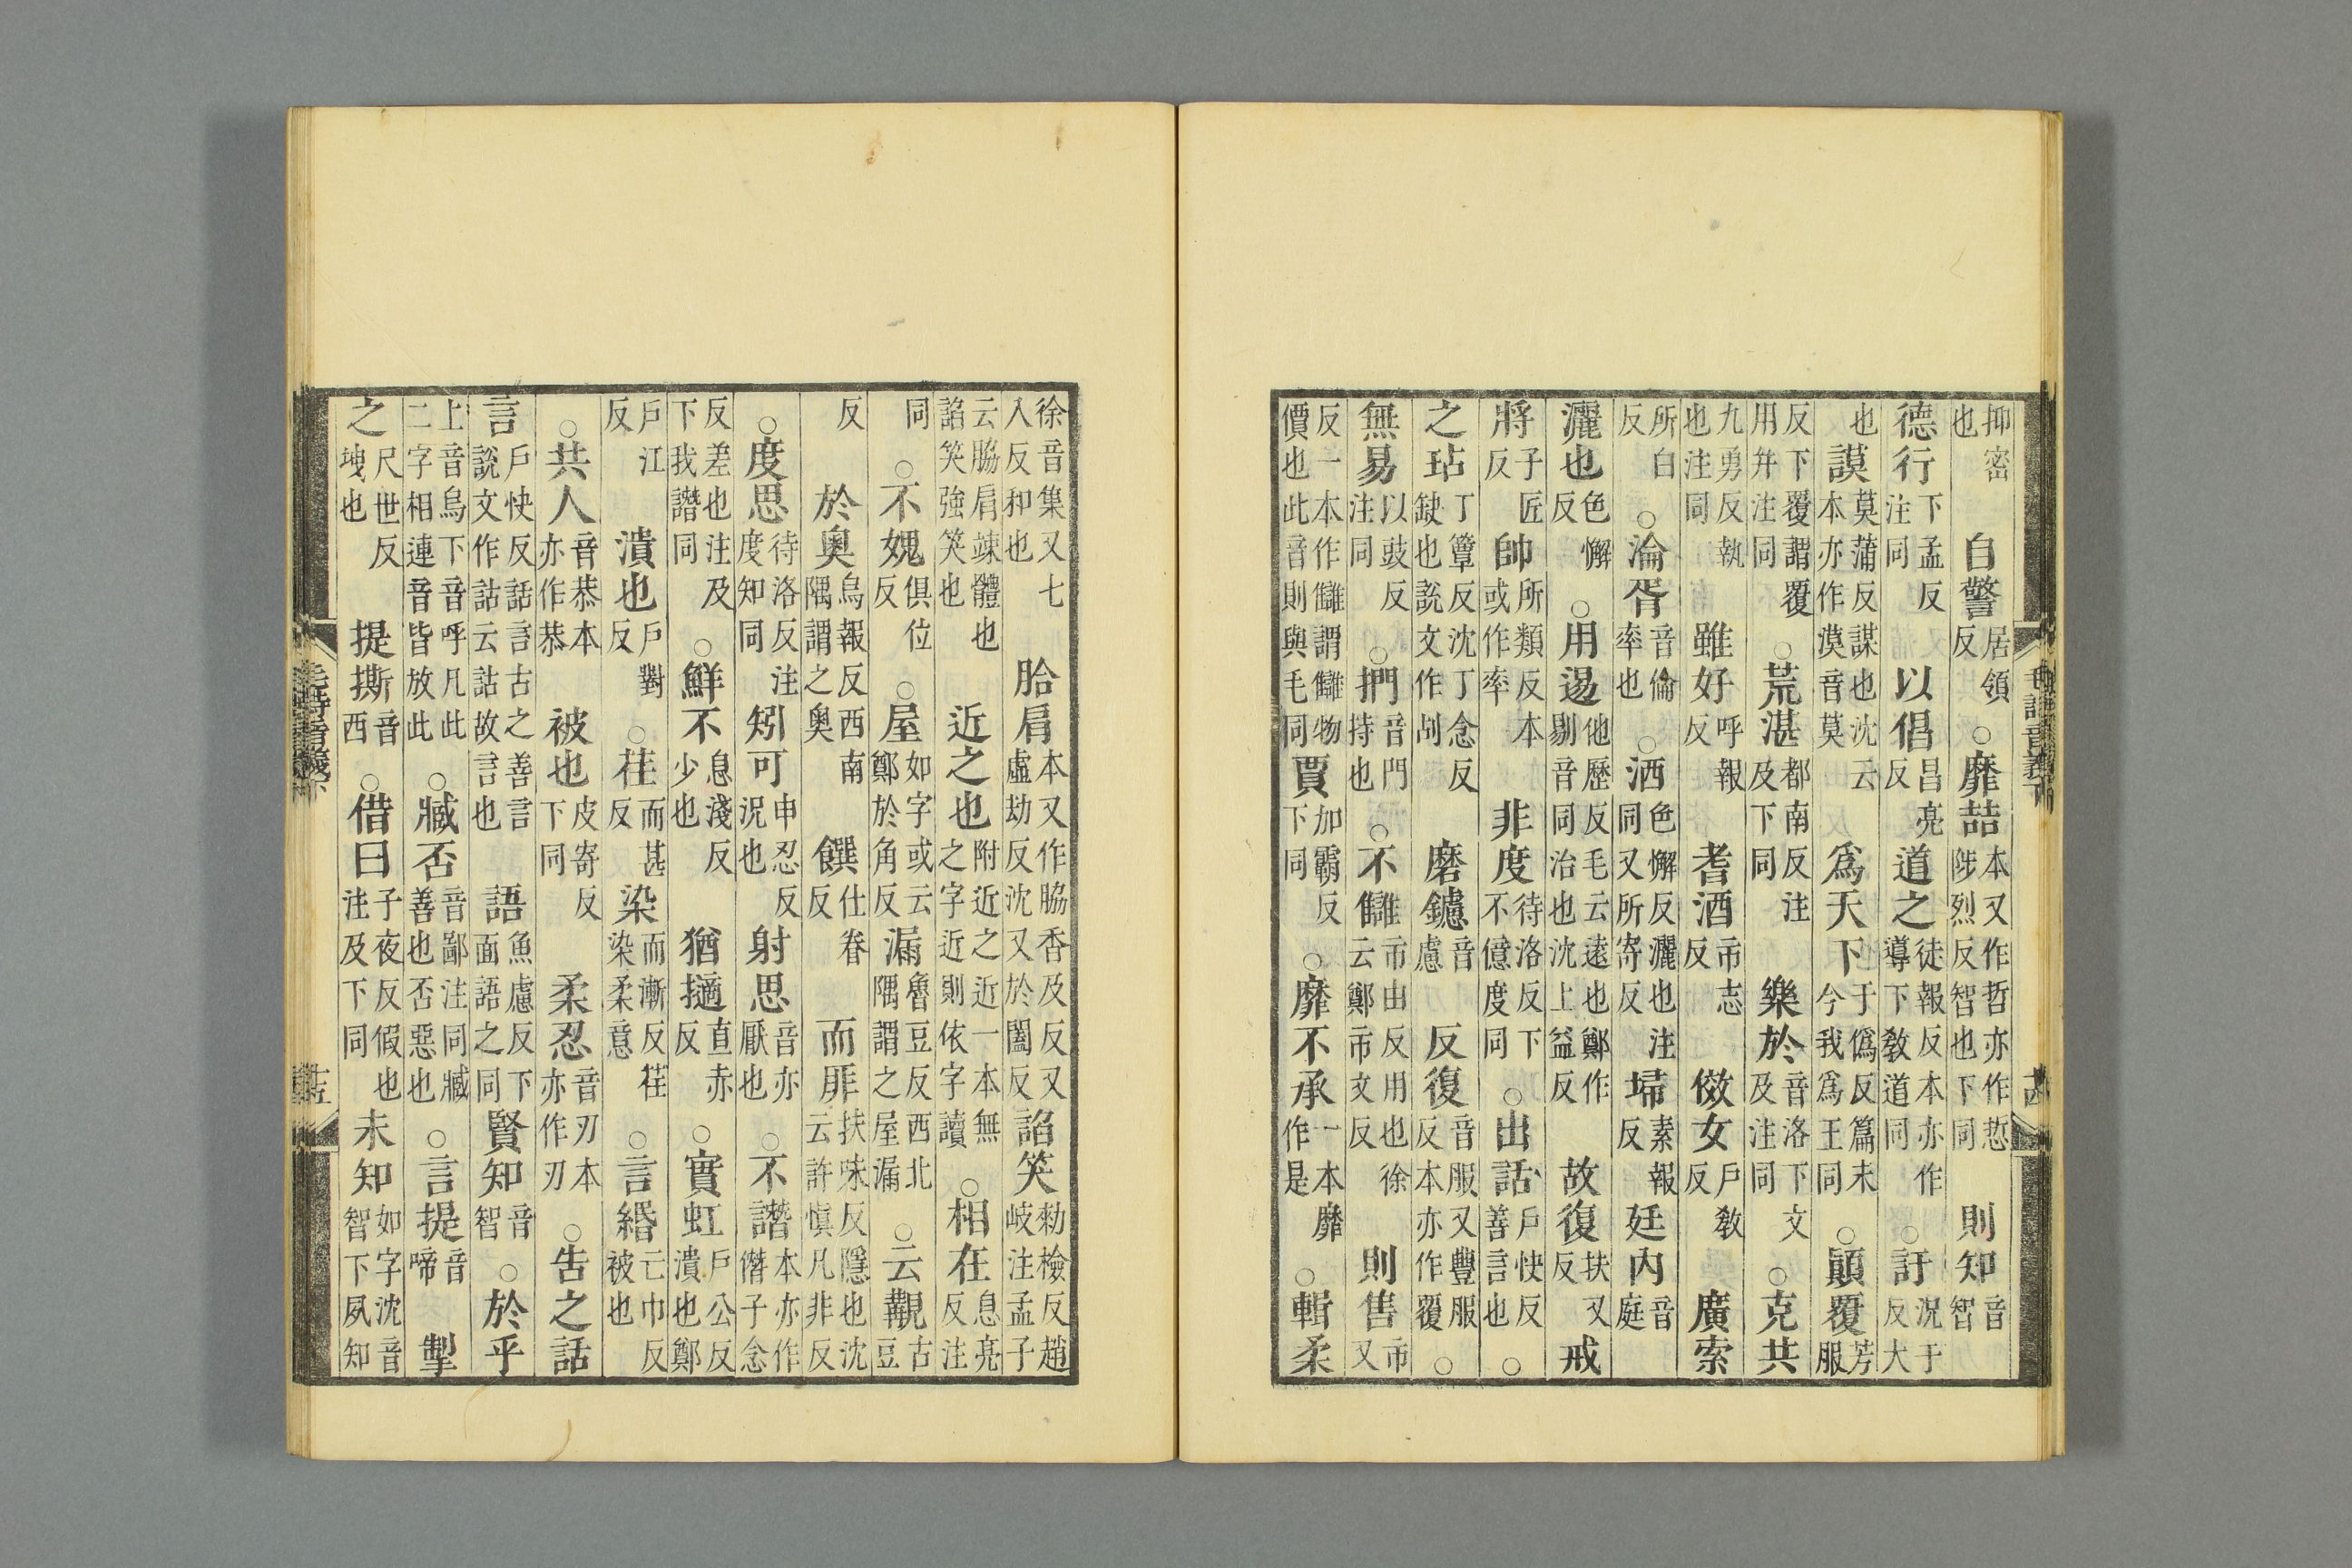 抑密也自警居領反○靡喆本又作哲亦作悊陟烈反智也下同則知音智
德行下孟反注同以倡昌亮反道之徒報反本亦作導下敎道同○訏況于反大
也謨莫蒲反謀也沈云本亦作漠音莫爲天下于僞反篇末今我爲王同○顚覆芳服
反下覆謂覆用并注同○荒湛都南反注及下同樂於音洛下文及注同○克共
九勇反執也注同雖好呼報反耆酒市志反傚女戶敎反廣索
所白反○淪胥音倫率也○洒色懈反灑也注同又所寄反埽素報反廷内音庭
灑也色懈反○用逷他歷反毛云遠也鄭作剔音同治也沈上益反故復扶又反戒
將子匠反帥所類反本或作率非度待洛反下不億度同○出話戶快反善言也○
之玷丁簟反沈丁念反缺也說文作㓠磨鑢音慮反復音服又豐服反本亦作覆○
無易以豉反注同○捫音門持也○不讎市由反用也徐云鄭市又反則售市又
反一本作讎謂讎物價也此音則與毛同賈加霸反下同○靡不承一本靡作是○輯柔
徐音集又七入反和也胎肩本又作脇香及反又虛劫反沈又於闔反諂笑勑檢反趙岐注孟子
云脇肩竦體也諂笑強笑也近之也附近之近一本無之字近則依字讀○相在息亮反注
同○不媿俱位反○屋如字或云鄭於角反漏魯豆反西北隅謂之屋漏○云覯古豆
反於奧烏報反西南隅謂之奧饌仕眷反而厞扶味反隱也沈云許愼凡非反
○度思待洛反注度知同矧可申忍反況也射思音亦厭也○不譖本亦作僭子念
反差也注及下我譖同○鮮不息淺反少也猶擿直赤反○實虹戶公反潰也鄭
戶江反潰也戶對反○荏而甚反染而漸反荏染柔意○言緡亡巾反被也
○共人音恭本亦作恭被也皮寄反下同柔忍音刃本亦作刃○告之話
言戶快反話言古之善言說文作詁云詁故言也語魚慮反下面語之同賢知音智○於乎
上音烏下音呼凡此二字相連音皆放此○臧否音鄙注同臧善也否惡也○言提音啼掣
之尺世反㙷也提撕音西○借曰子夜反假也注及下同未知如字沈音智下夙知